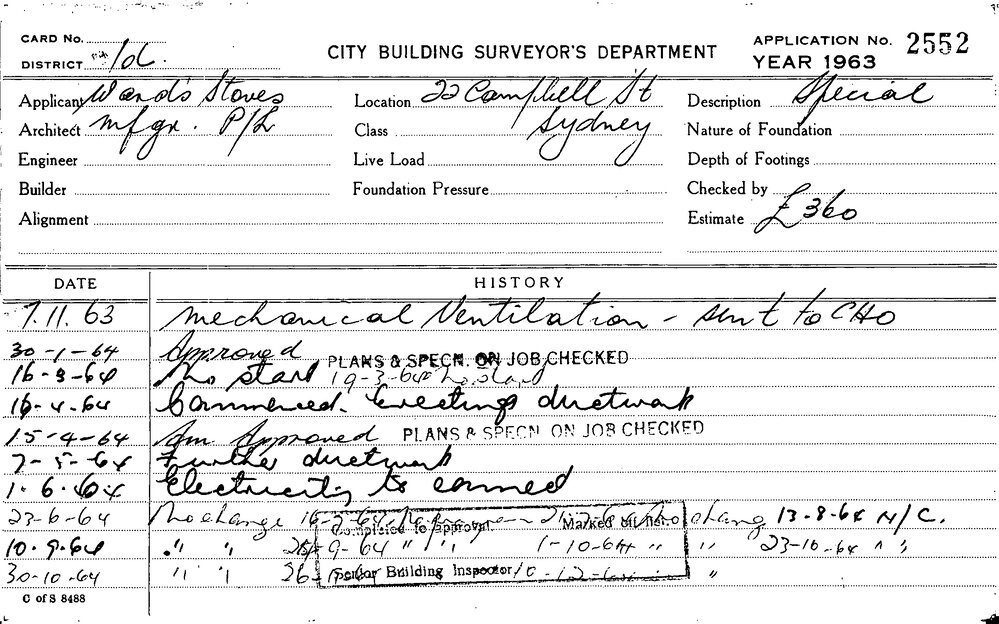 CARD No.
DISTRICT
CITY BUILDING SURVEYOR'S DEPARTMENT
APPLICATION No. 2552
YEAR 1963
Applicant Stoves
Location 22 Campbell St
Description Special
Architect mfgr. P/L
Class Sydney
Nature of Foundation
Engineer
Live Load
Depth of Footings
Builder
Foundation Pressure
Checked by
Alignment
Estimate £360
DATE HISTORY
7.11.63 Mechanical Ventilation - sent to CHO
30-1-64 Approved PLANS & SPECN. ON JOB CHECKED
16-3-64 No start 19-3-64 No start
16-4-64 Commenced. Erecting ductwork
15-4-64 Am Approved PLANS & SPECN ON JOB CHECKED
7-5-64 Further ductwork
1.6.64 Electricity to connect
23-6-64 No change 13-8-64 N/C.
Completed to approval Marked off list
10.9.64 " " 9-64 " " 1-10-64 " " 23-10-64 " "
30-10-64 " " 26
Senior Building Inspector
C of S 8488